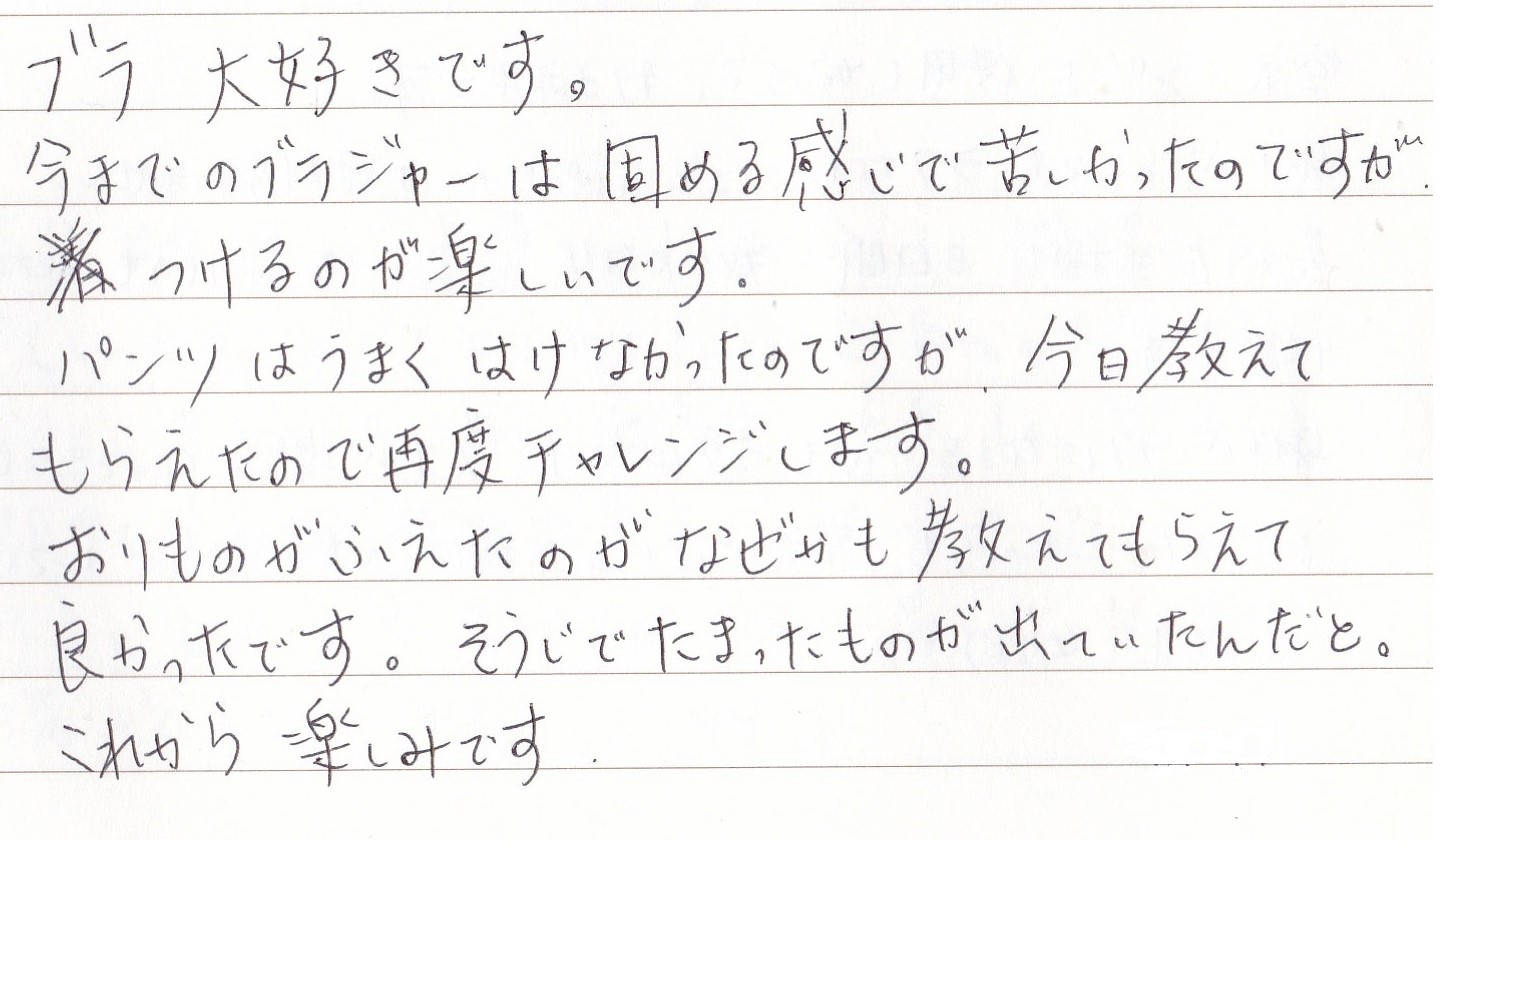 ブラ 大好きです。
今までのブラジャーは固める感じで苦しかったのですが、
つけるのが楽しいです。
パンツはうまくはけなかったのですが、今日教えて
もらえたので再度チャレンジします。
おりものがふえたのがなぜかも教えてもらえて
良かったです。そうじでたまったものが出ていたんだと。
これから楽しみです.